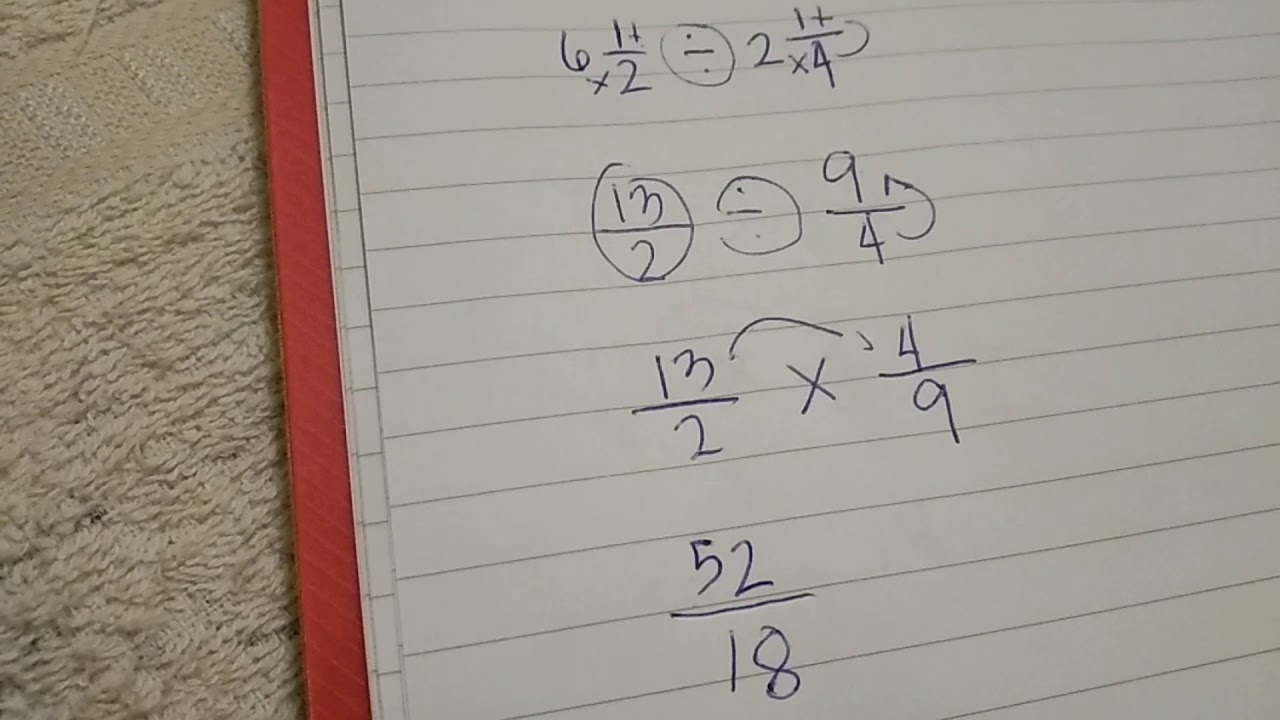 6 1+/×2 ÷ 2 1+/×4
13/2 ÷ 9/4
13/2 × 4/9
52/18